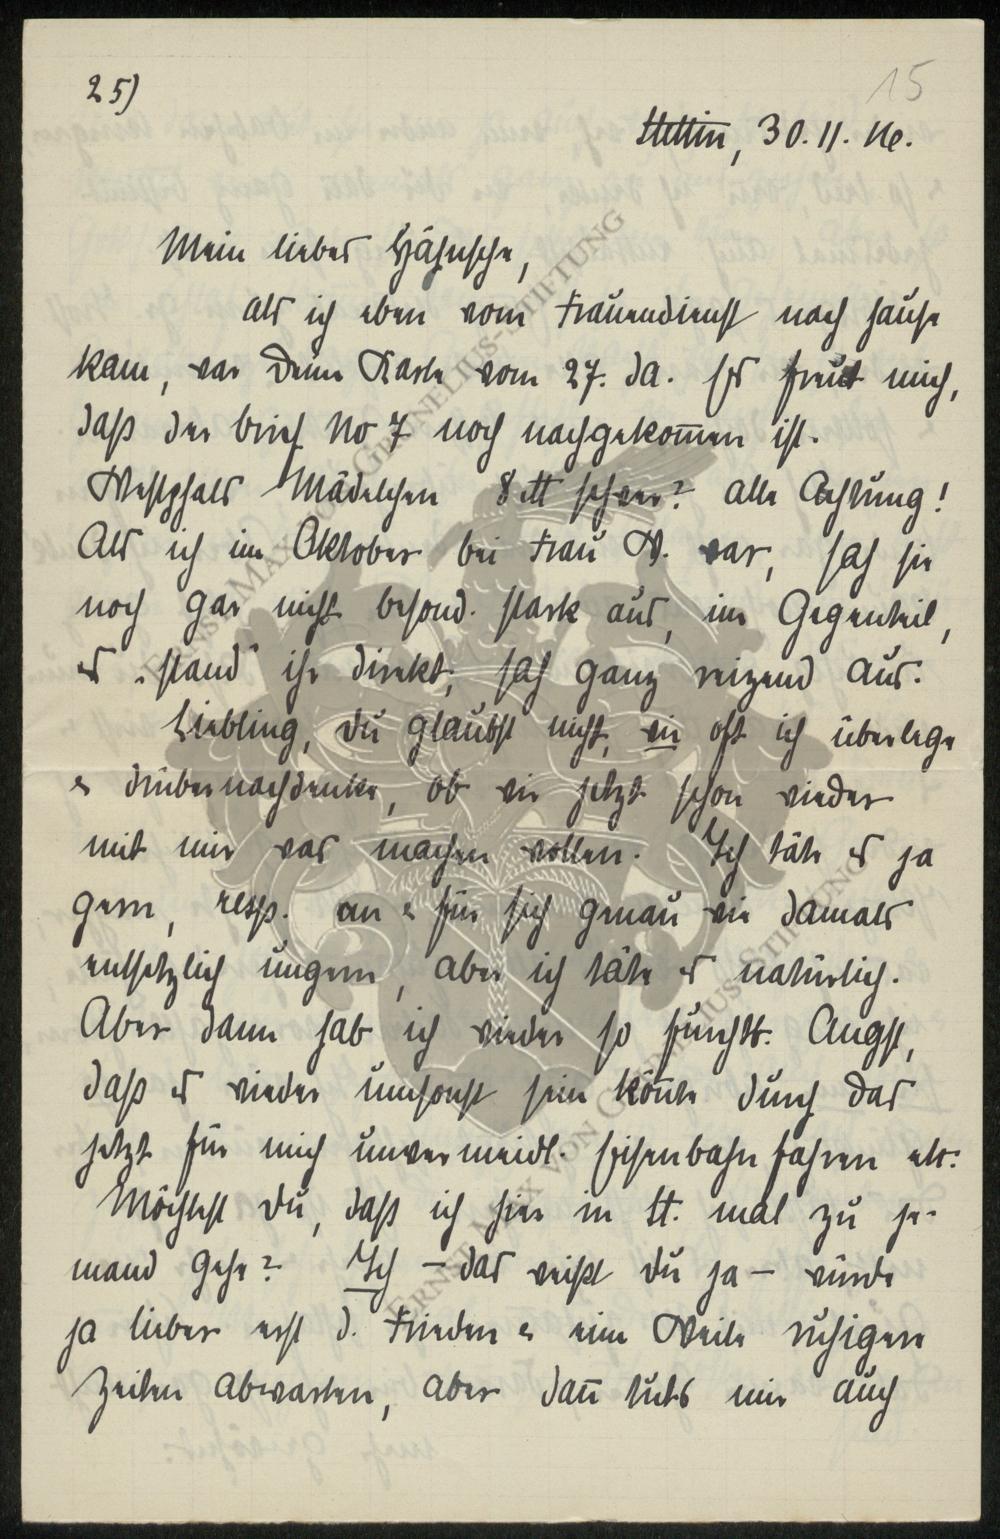 25)
15
Stettin, 30. 11. 16.
Mein lieber Hähnsche,
als ich eben vom Frauendienst nach hause
kam, war Deine Karte vom 27. da. Es freut mich,
daß der brief No 7 noch nachgekom̅en ist.
Westphals Mädelchen 8 ℔ schwer? alle Achtung!
Als ich im Oktober bei Frau W. war, sah sie
noch gar nicht besond. stark aus, im Gegenteil,
es „stand" ihr direkt, sah ganz reizend aus.
Liebling, du glaubst nicht, wie oft ich überlege
u drüber nachdenke, ob wir jetzt schon wieder
mit mir was machen wollen. Ich täte es ja
gern, resp. an u für sich genau wie damals
entsetzlich ungern, aber ich täte es natürlich.
Aber dann hab ich wieder so furchtb. Angst,
daß es wieder umsonst sein kön̅te durch das
jetzt für mich unvermeidl. Eisenbahnfahren etc.
Möchtest Du, daß ich hier in St. mal zu je-
mand gehe? Ich – das weißt du ja – würde
ja lieber erst d. Frieden u eine Weile ruhigere
Zeiten abwarten, aber dan̅ tuts mir auch
ERNST MAX VON GRUNELIUS-STIFTUNG
ERNST MAX VON GRUNELIUS-STIFTUNG